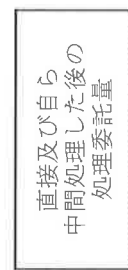 直接及び自ら
中間処理した後の
処理委託量